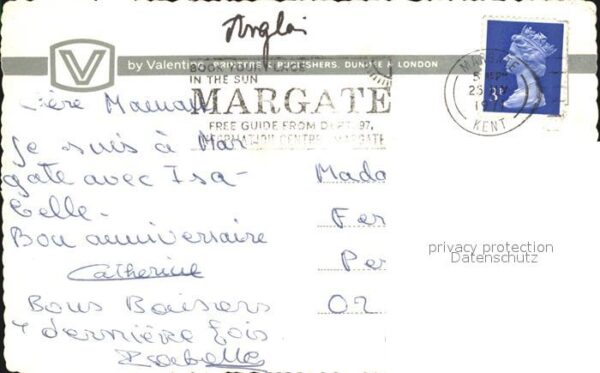 Anglai
by Valentine
CO. PRINTERS & PUBLISHERS, DUNDEE & LONDON
IN THE SUN
MARGATE
FREE GUIDE FROM DEPT. 97,
INFORMATION CENTRE, MARGATE
MARGATE
KENT
Maman
Je suis à Mar
gate avec Isa-
belle.
Bon anniversaire
Catherine
Bons Baisers
dernière fois
Isabelle
Mada
Fer
Per
02
privacy protection
Datenschutz